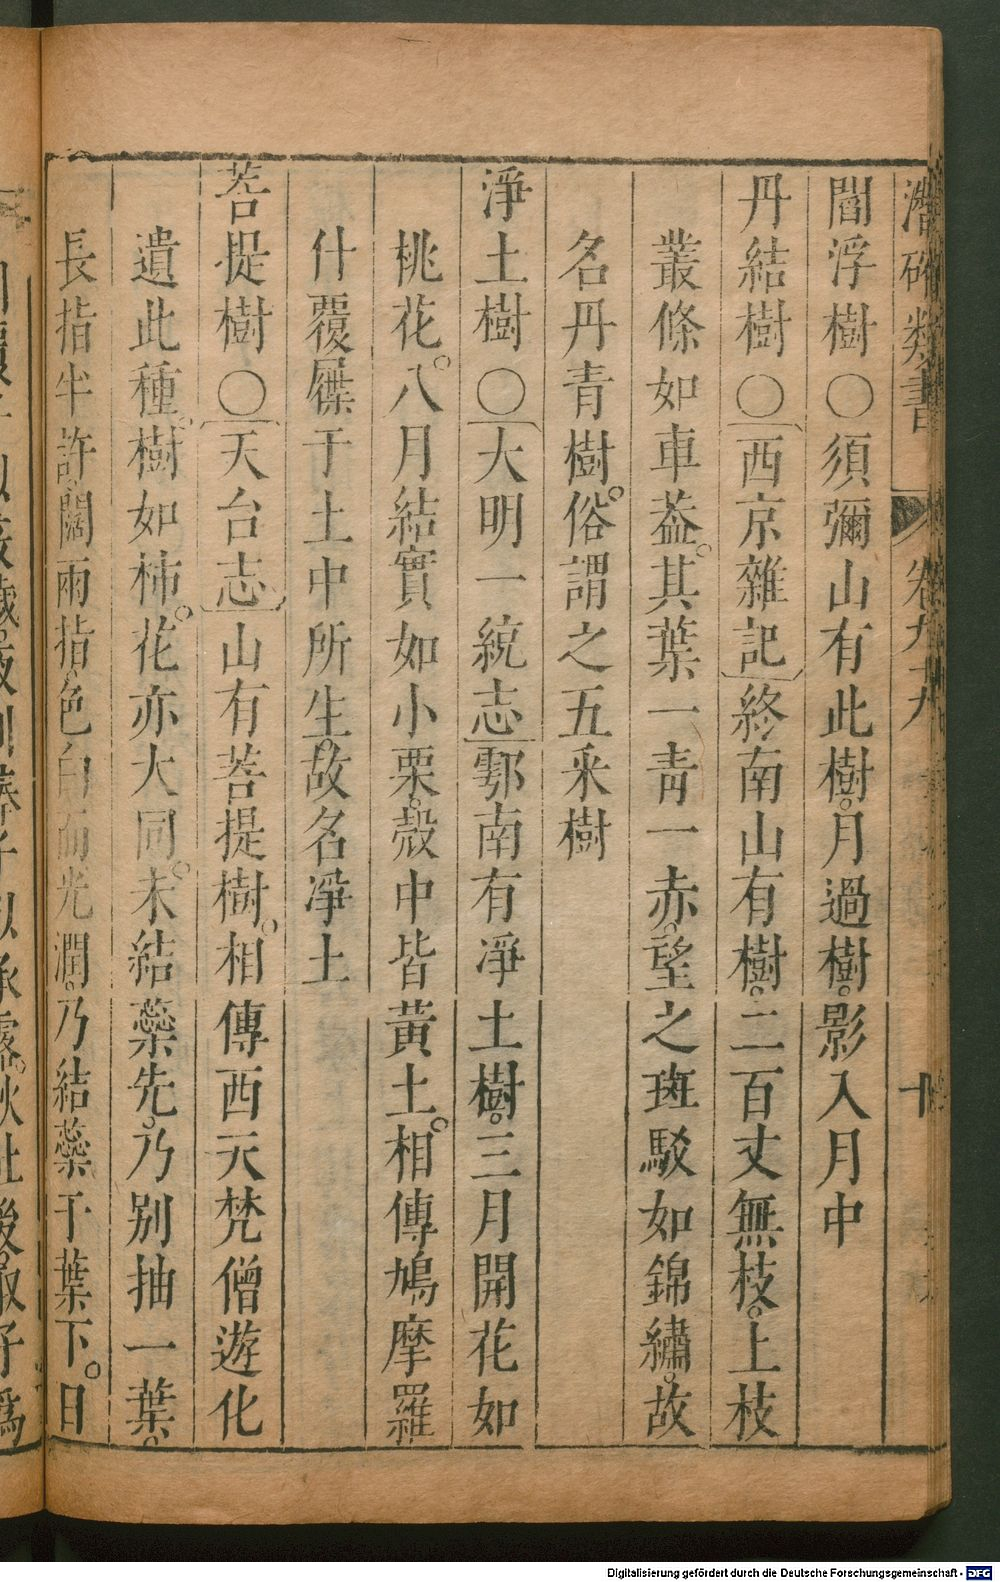 潛確類書 卷九十九 十
閻浮樹〇須彌山有此樹。月過樹。影入月中
丹結樹〇西京雜記終南山有樹。二百丈無枝。上枝
叢條如車葢。其葉一青一赤。望之斑駁如錦繡。故
名丹青樹。俗謂之五釆樹
淨土樹〇大明一統志鄠南有淨土樹。三月開花如
桃花。八月結實如小栗。殼中皆黃土。相傳鳩摩羅
什覆屧于土中所生。故名淨土
菩提樹〇天台志山有菩提樹。相傳西天梵僧遊化
遺此種。樹如柿。花亦大同。未結蘂先。乃別抽一葉。
長指半許闊兩指。色白而光潤。乃結蘂于葉下。日
Digitalisierung gefördert durch die Deutsche Forschungsgemeinschaft - DFG